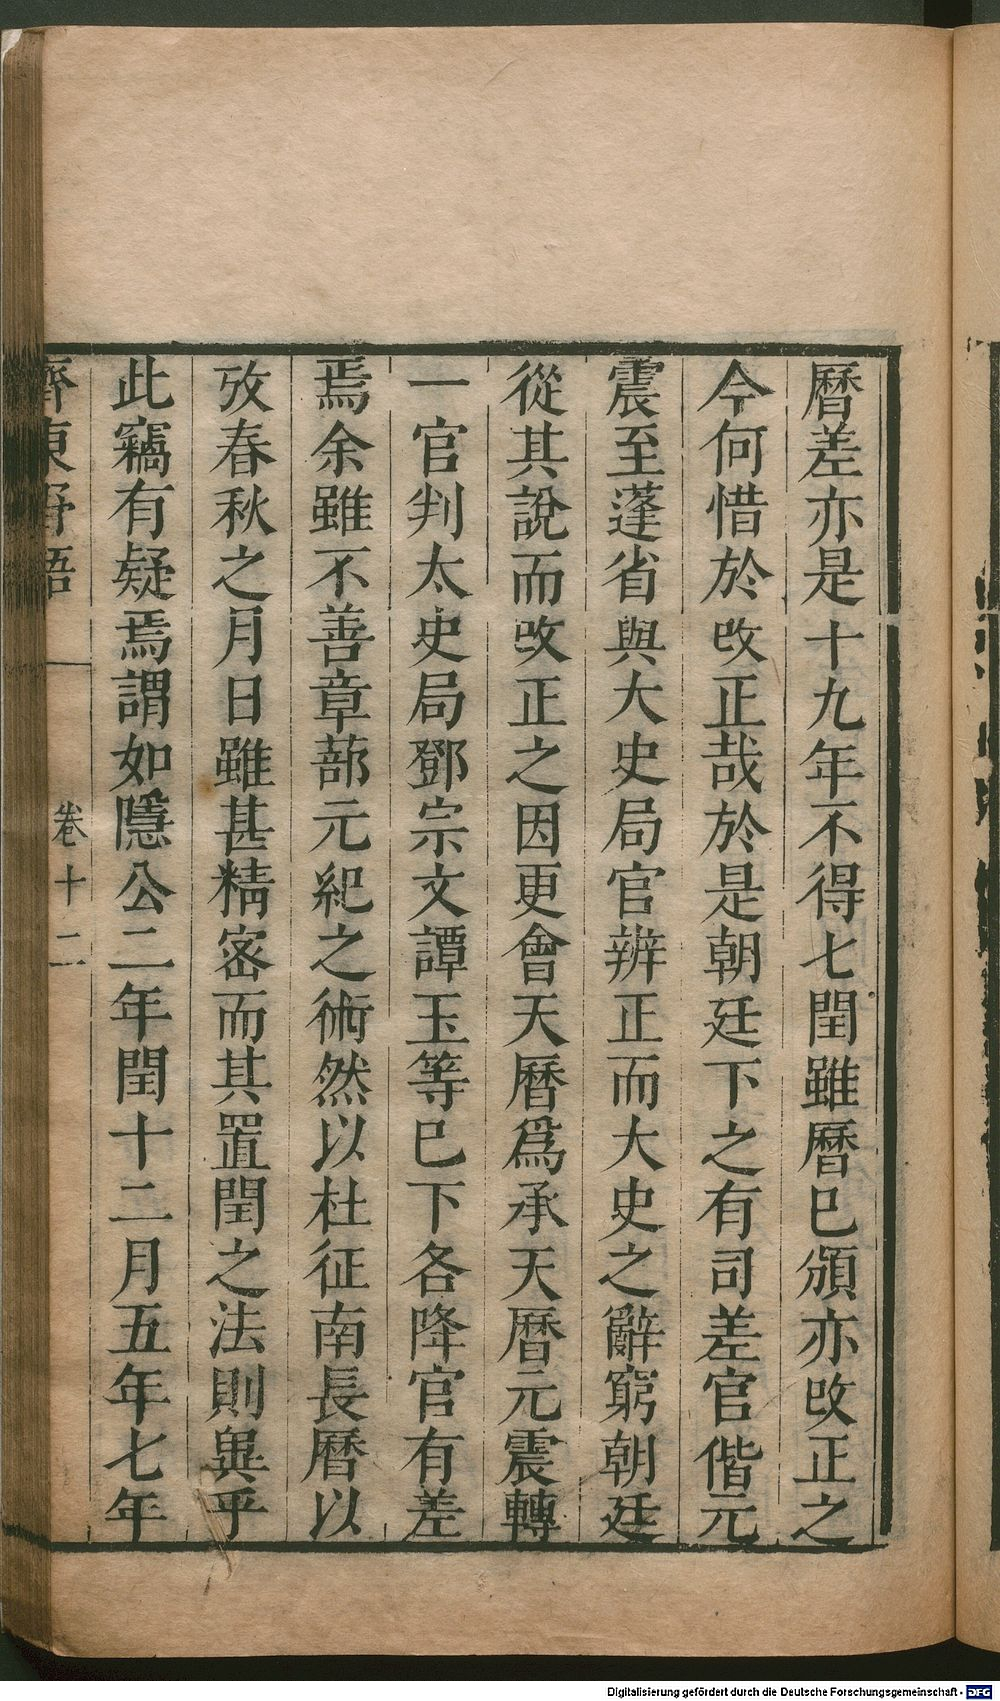 曆差亦是十九年不得七閏雖曆已頒亦改正之
今何惜於改正哉於是朝廷下之有司差官偕元
震至蓬省與大史局官辨正而大史之辭窮朝廷
從其說而改正之因更會天曆爲承天曆元震轉
一官判太史局鄧宗文譚玉等已下各降官有差
焉余雖不善章蔀元紀之術然以杜征南長曆以
攷春秋之月日雖甚精宻而其置閏之法則異乎
此竊有疑焉謂如隱公二年閏十二月五年七年
齊東野語
卷十二
Digitalisierung gefördert durch die Deutsche Forschungsgemeinschaft - DFG